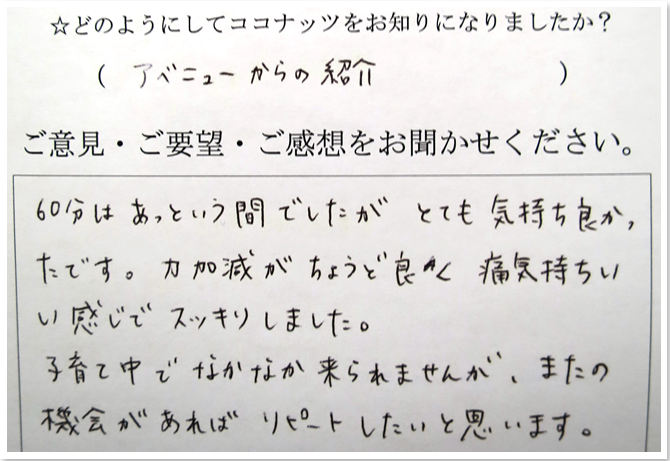 ☆どのようにしてココナッツをお知りになりましたか？
( アベニューからの紹介 )
ご意見・ご要望・ご感想をお聞かせください。
60分はあっという間でしたが とても気持ち良かっ
たです。力加減がちょうど良く 痛気持ちい
い感じで スッキリしました。
子育て中で なかなか来られませんが、またの
機会があれば リピートしたいと思います。